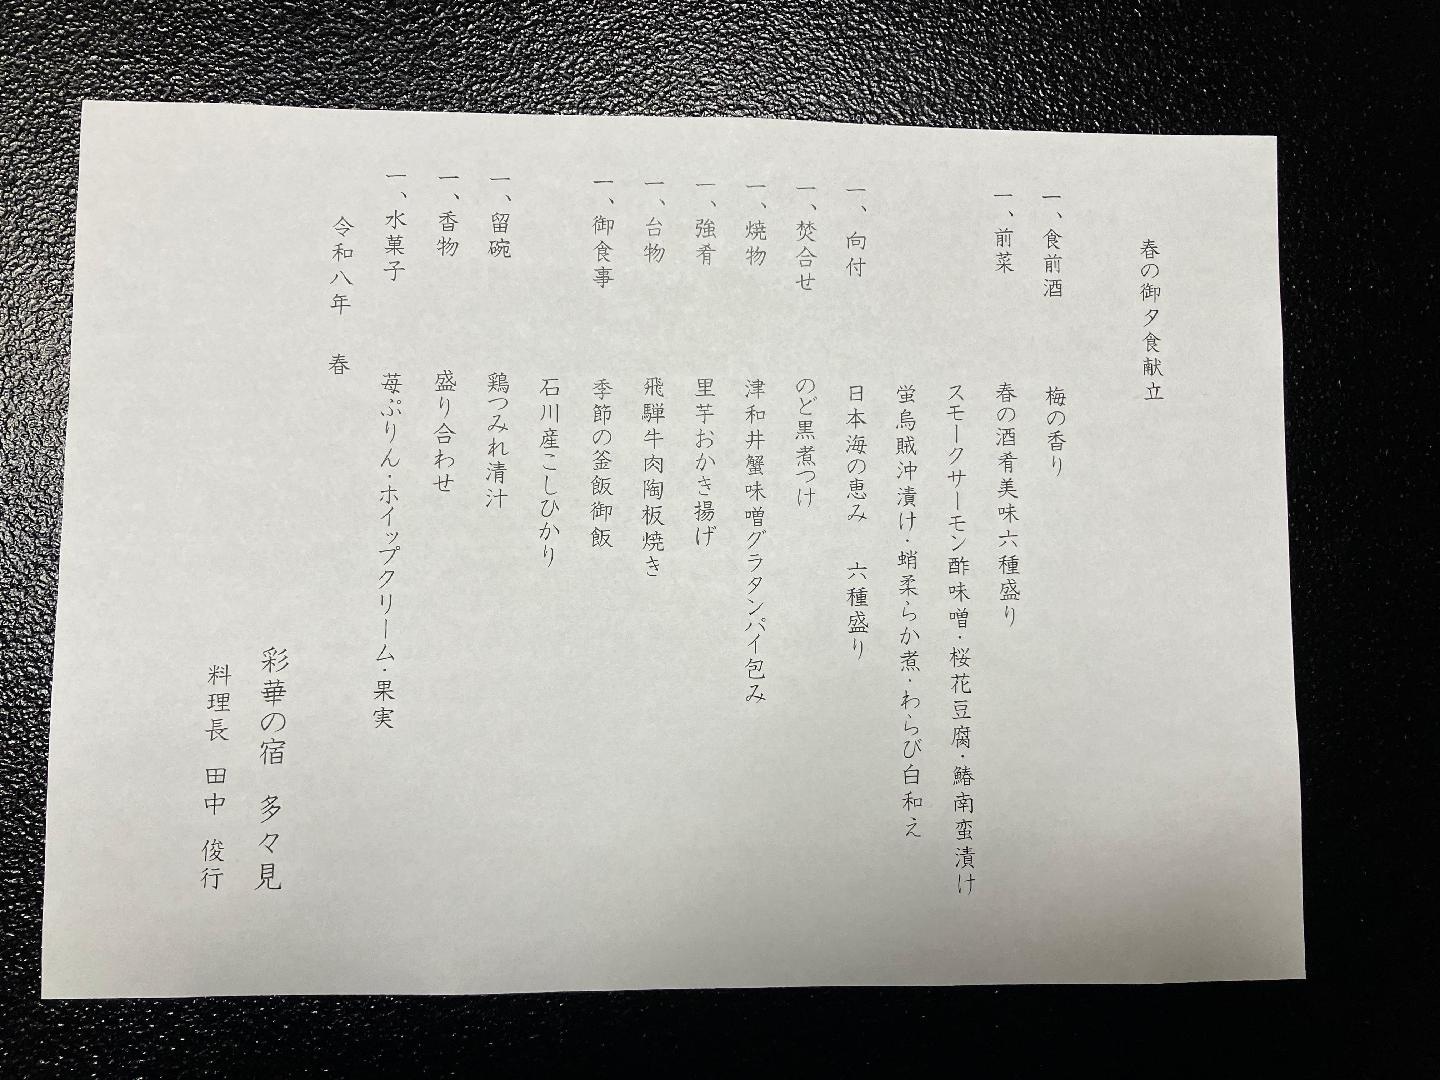 春の御夕食献立
一、食前酒　梅の香り
一、前菜　春の酒肴美味六種盛り
スモークサーモン酢味噌・桜花豆腐・鰆南蛮漬け
蛍烏賊沖漬け・蛸柔らか煮・わらび白和え
一、向付　日本海の恵み　六種盛り
一、焚合せ　のど黒煮つけ
一、焼物　津和井蟹味噌グラタンパイ包み
一、強肴　里芋おかき揚げ
一、台物　飛騨牛肉陶板焼き
一、御食事　季節の釜飯御飯
石川産こしひかり
一、留碗　鶏つみれ清汁
一、香物　盛り合わせ
一、水菓子　苺ぷりん・ホイップクリーム・果実
令和八年　春
彩華の宿　多々見
料理長　田中　俊行